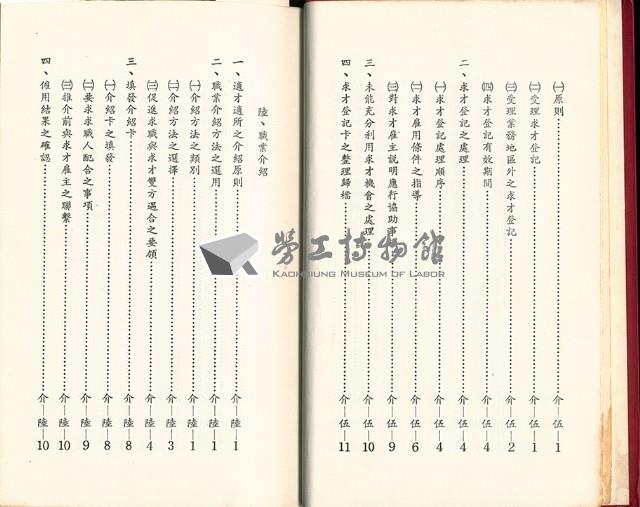 ㈠原則……介—伍—1
㈡受理求才登記……介—伍—1
㈢受理業務地區外之求才登記……介—伍—2
㈣求才登記有效期間……介—伍—4
二、求才登記之處理……介—伍—4
㈠求才登記處理順序……介—伍—4
㈡求才雇用條件之指導……介—伍—6
㈢對求才雇主説明應行協助事……介—伍—9
三、未能充分利用求才機會之處理……介—伍—10
四、求才登記卡之整理歸檔……介—伍—11
陸、職業介紹
一、適才適所之介紹原則……介—陸—1
二、職業介紹方法之選用……介—陸—1
㈠介紹方法之類別……介—陸—1
㈡介紹方法之選擇……介—陸—3
㈢促進求職與求才雙方遇合之要領……介—陸—4
三、填發介紹卡……介—陸—8
㈠介紹卡之填發……介—陸—8
㈡要求求職人配合之事項……介—陸—9
㈢推介前與求才雇主之聯繫……介—陸—10
四、僱用結果之確認……介—陸—10
勞工博物館
KAOHSIUNG MUSEUM OF LABOR